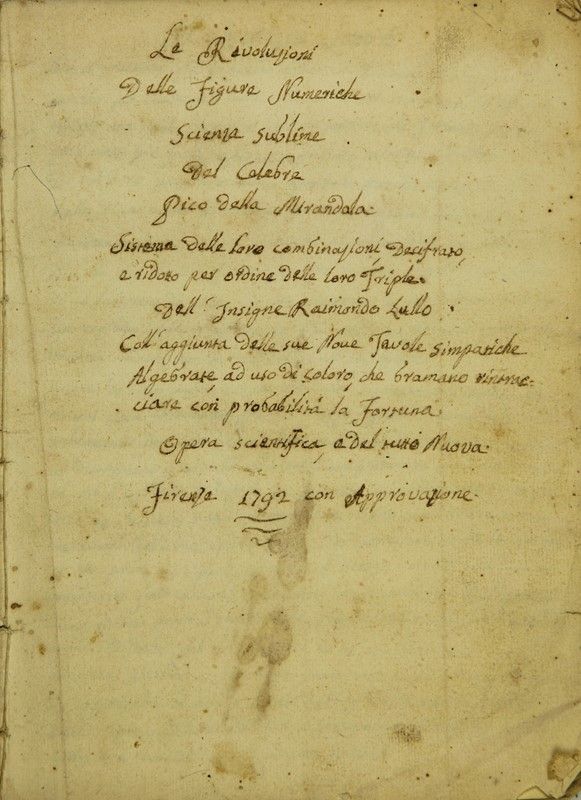 Le Revoluzioni
Delle Figure Numeriche
Scienza Sublime
Del Celebre
Pico della Mirandola
Sistema delle loro combinazioni, Decifrato,
e ridoto per ordine delle loro Triple.
Dell' Insigne Raimondo Lullo
Coll' aggiunta delle sue Nove Tavole Simpatiche
Algebrate, ad uso di coloro, che bramano rintrac=
ciare con probabilità la Fortuna.
Opera scientifica, e del tutto Nuova.
Firenze 1792 con Approvazione.